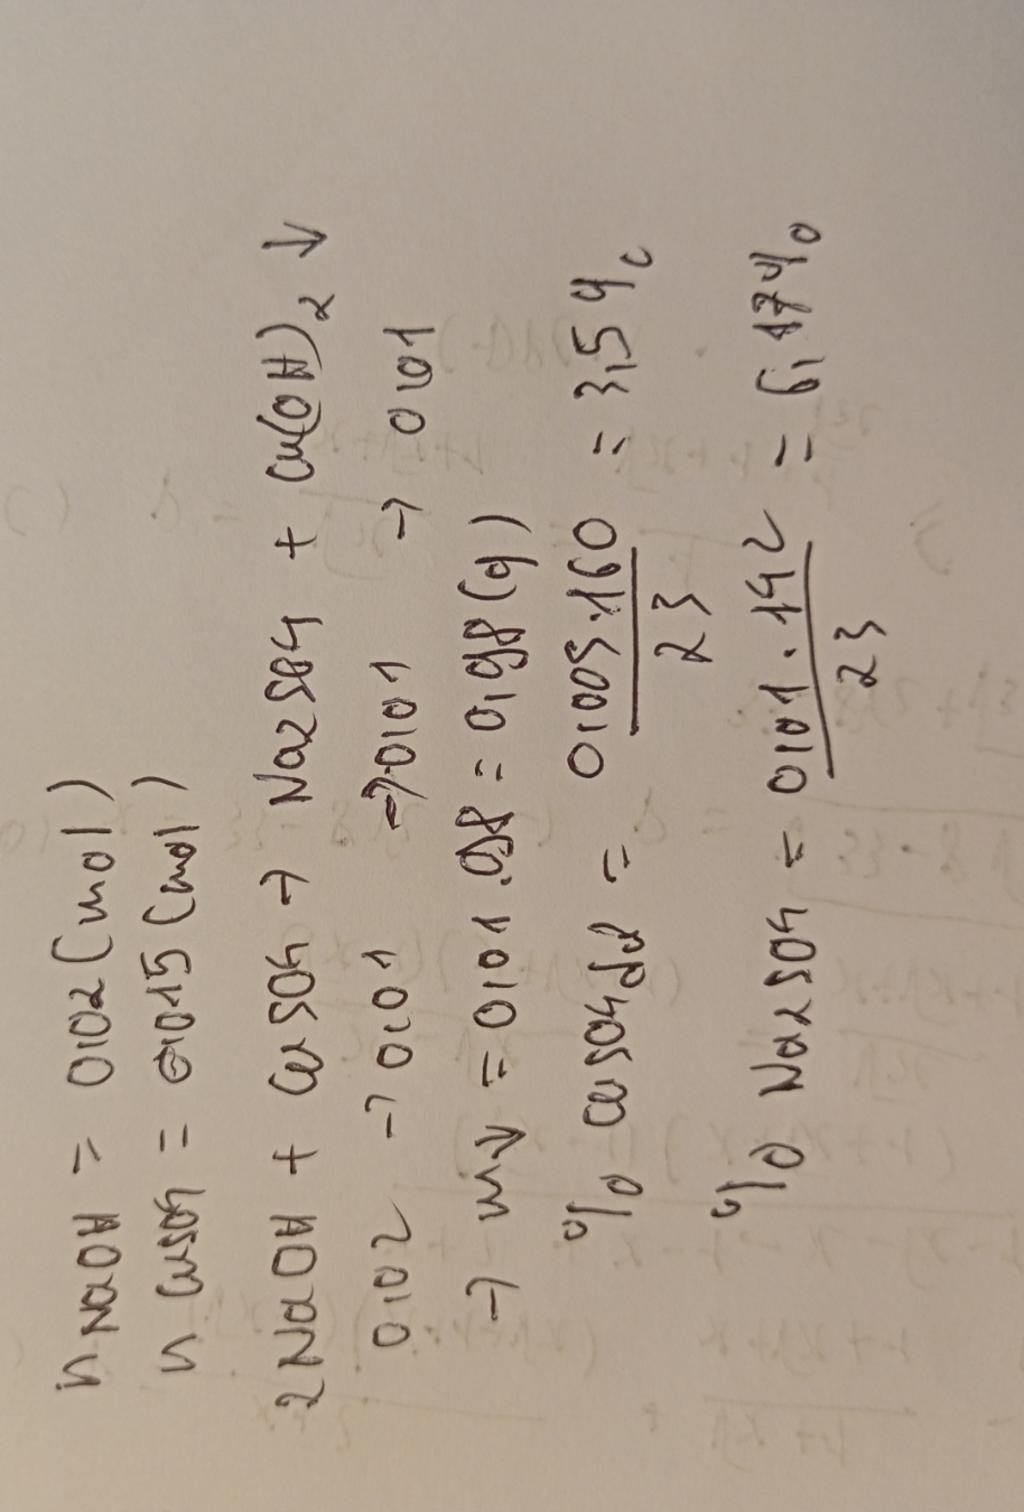 n NaOH = 0,02 (mol)
n CuSO4 = 0,015 (mol)
2NaOH + CuSO4 → Na2SO4 + Cu(OH)2 ↓
0,02 → 0,01 → 0,01 → 0,01
→ m↓ = 0,01 . 98 = 0,98 (g)
% CuSO4 dư = 0,005.160 / 23 = 3,5 %
% Na2SO4 = 0,01 . 142 / 23 = 6,17%